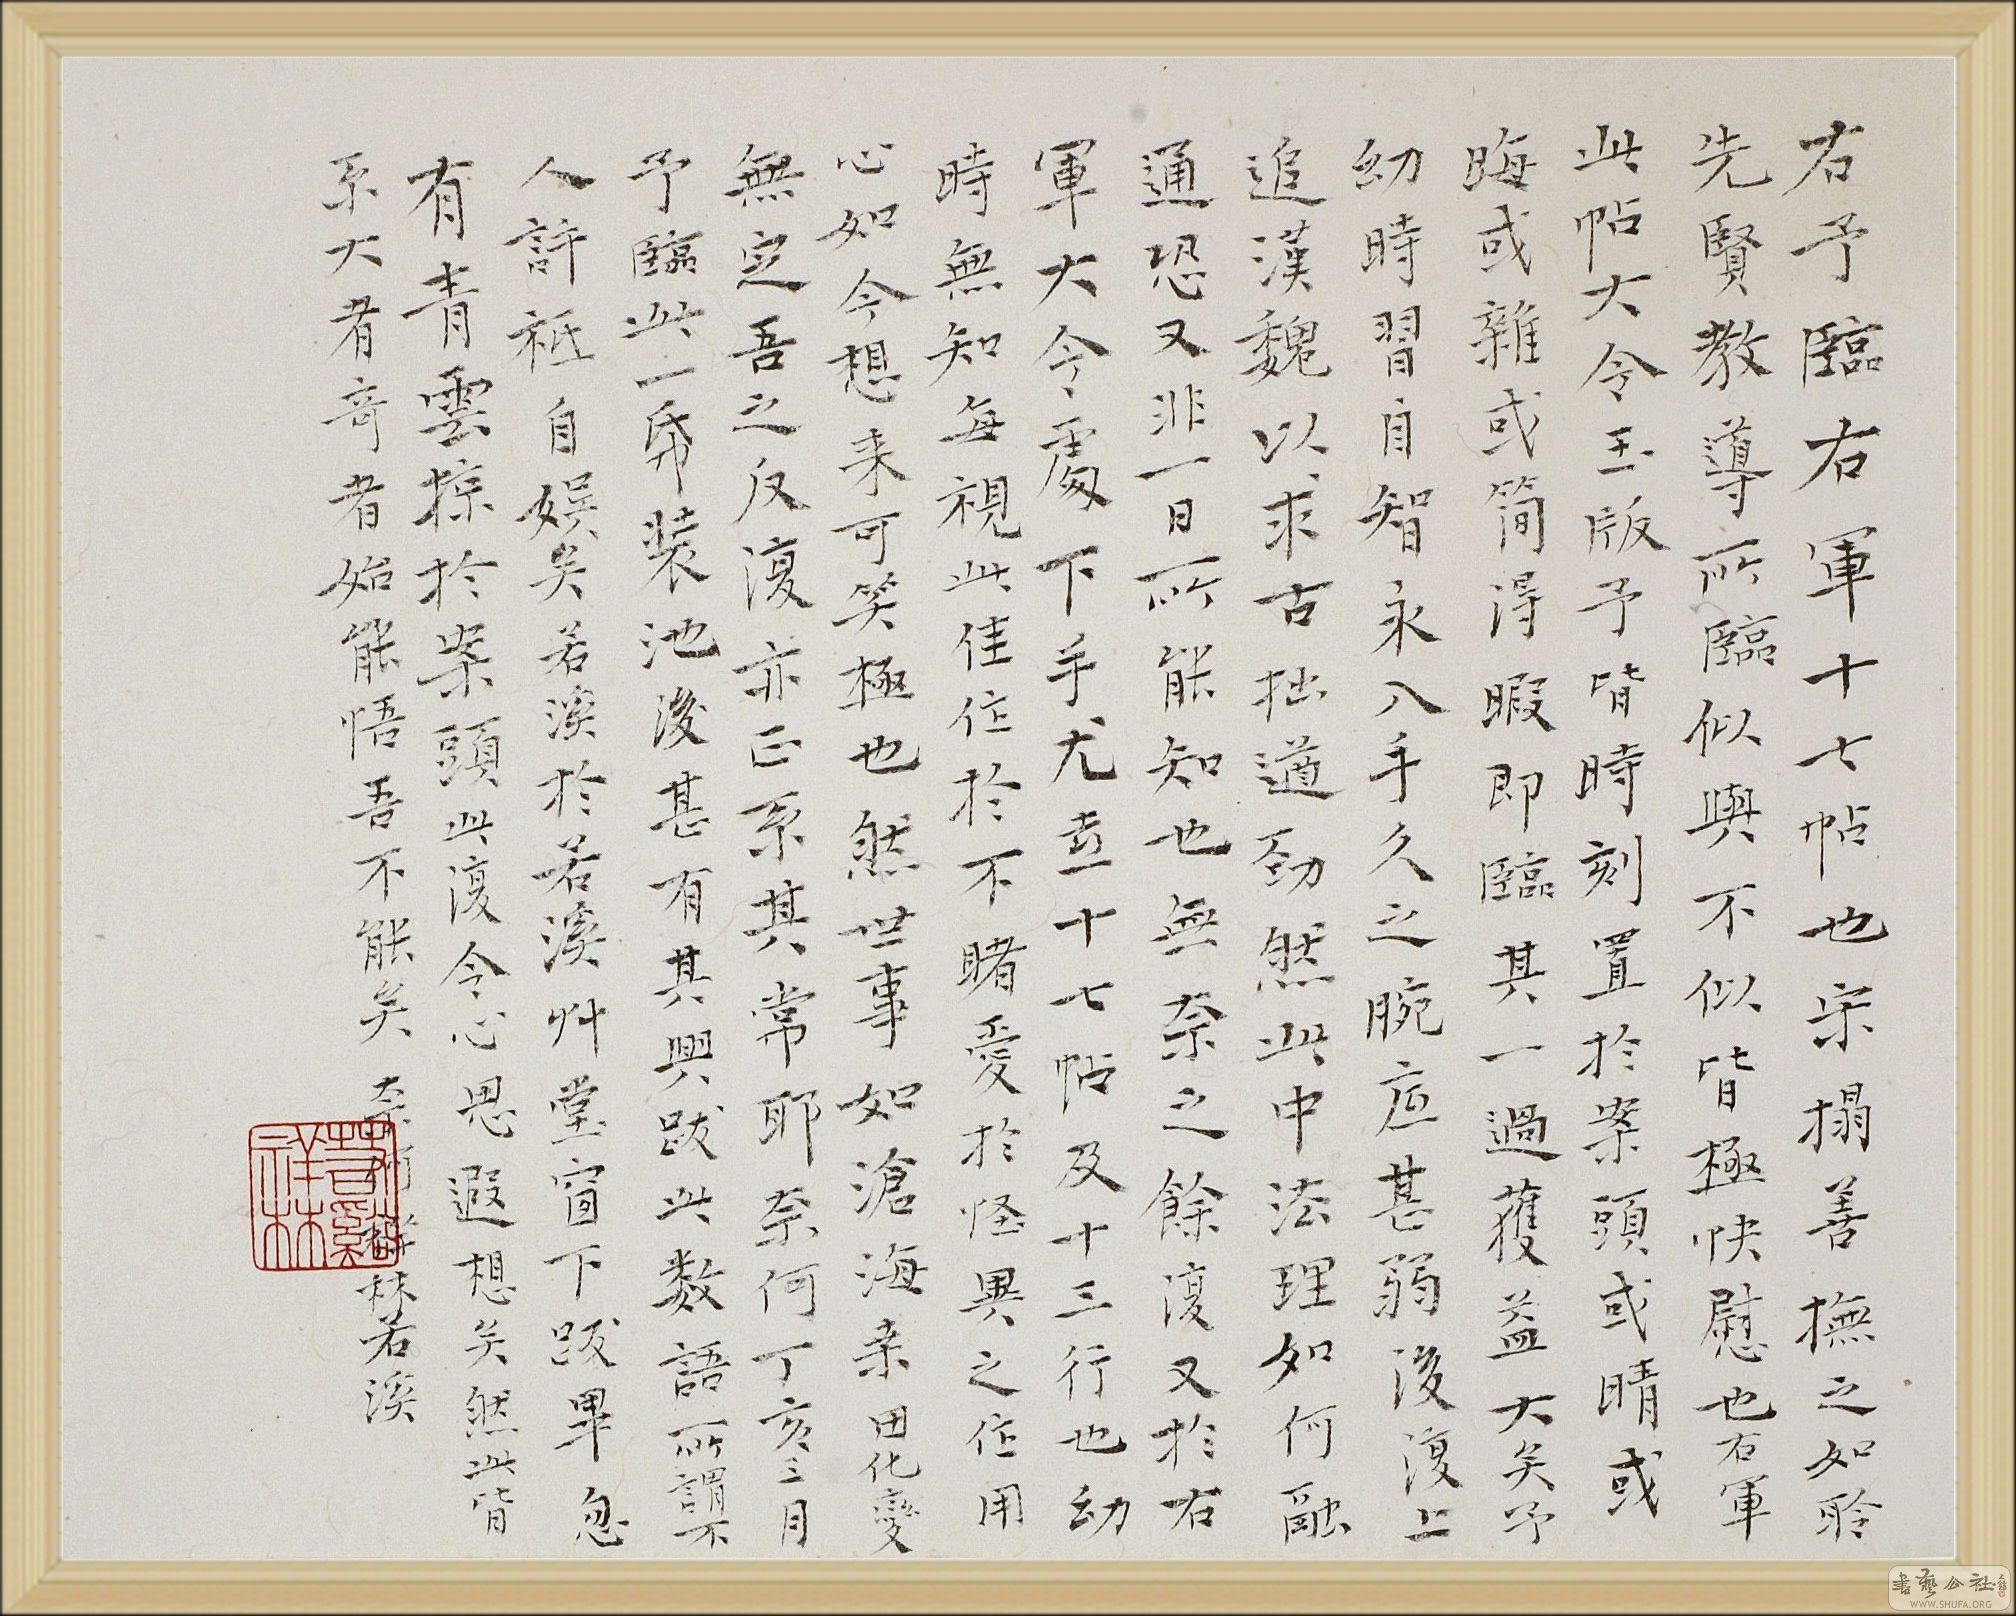 右予臨右軍十七帖也宋搨善撫之如聆
先賢教導所臨似與不似皆極快慰也右軍
此帖大令玉版予皆時刻置於案頭或晴或
晦或雜或简得暇即臨其一過獲益大矣予
幼時習自智永入手久之腕应甚弱後復上
追漢魏以求古拙遒劲然此中法理如何融
通恐又非一日所能知也無奈之餘復又於右
軍大令處下手尤喜十七帖及十三行也幼
時無知每視此佳作於不睹爱於怪異之作用
心如今想来可笑極也然世事如滄海桑田化變
無定吾之反復亦正系其常耶奈何丁亥三月
予臨此一帋装池後甚有其興跋此数語所謂不
人許祗自娱矣若溪於若溪艸堂窗下跋畢忽
有青雲掠於案頭此復令心思遐想矣然此皆
系大者奇者始能悟吾不能矣 奈何 祥林若溪
書藝公社
WWW.SHUFA.ORG